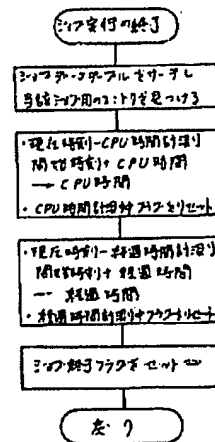 ジョブ実行の終了
ジョブデータテーブルをサーチし
当該ジョブ用のエントリを見つける
・現在時刻-CPU時間計測
開始時刻+CPU時間
→CPU時間
・CPU時間計測中フラグをリセット
・現在時刻-経過時間計測
開始時刻+経過時間
→経過時間
・経過時間計測中フラグをリセット
ジョブ終了フラグをセット
戻り